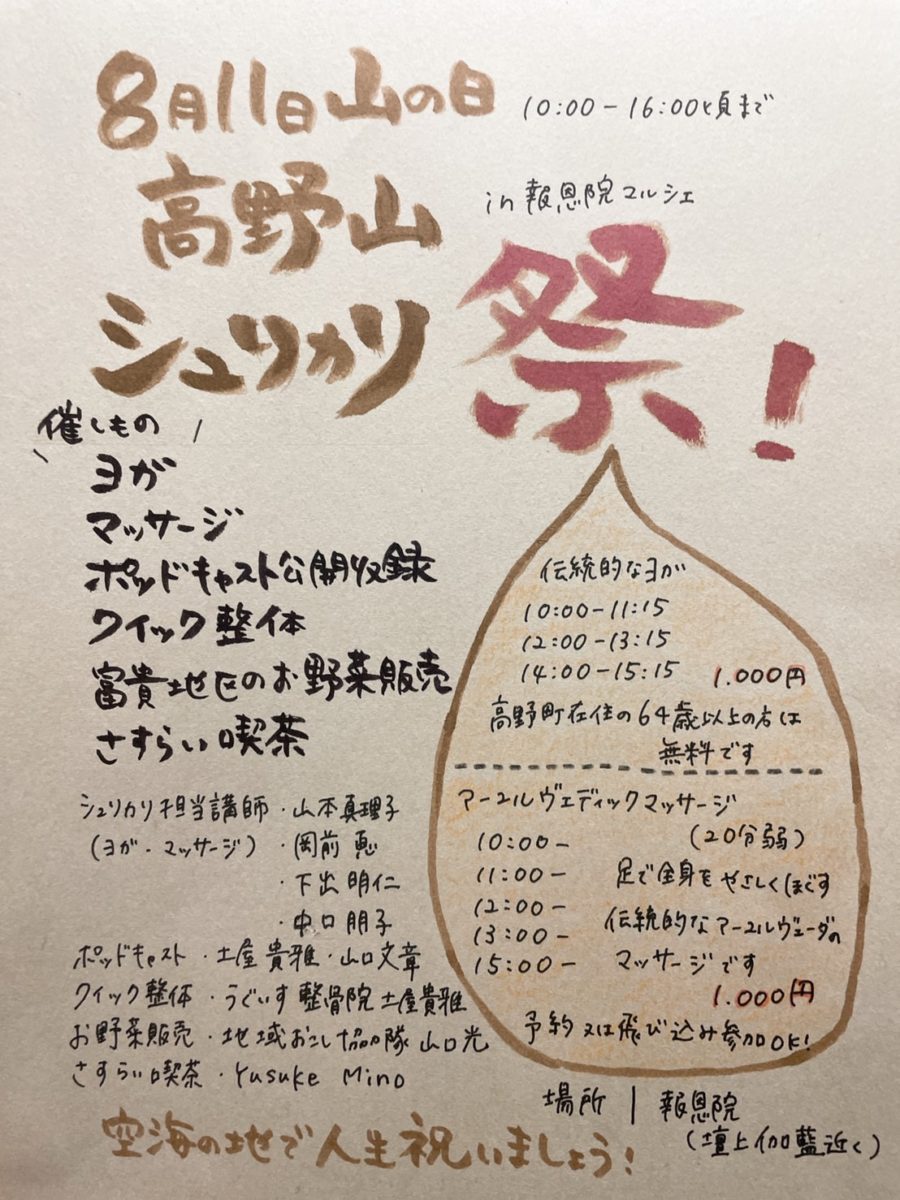 8月11日 山の日 10:00-16:00頃まで
高野山 in 報恩院マルシェ
シュリカリ 祭!
催しもの
ヨガ
マッサージ
ポッドキャスト公開収録
クイック整体
富貴地区のお野菜販売
さすらい喫茶
シュリカリ担当講師・山本真理子
(ヨガ・マッサージ)・岡前 恵
・下出明仁
・中口朋子
ポッドキャスト・土屋貴雅・山口文章
クイック整体・うぐいす整骨院 土屋貴雅
お野菜販売・地域おこし協力隊 山口光
さすらい喫茶・Yusuke Mino
伝統的なヨガ
10:00-11:15
12:00-13:15
14:00-15:15 1.000円
高野町在住の64歳以上の方は
無料です
アーユルヴェディックマッサージ
10:00- (20分弱)
11:00- 足で全身をやさしくほぐす
12:00- 伝統的なアーユルヴェーダの
13:00- マッサージです
15:00-
1.000円
予約又は飛び込み参加OK!
場所 | 報恩院
(壇上伽藍近く)
空海の地で人生祝いましょう!